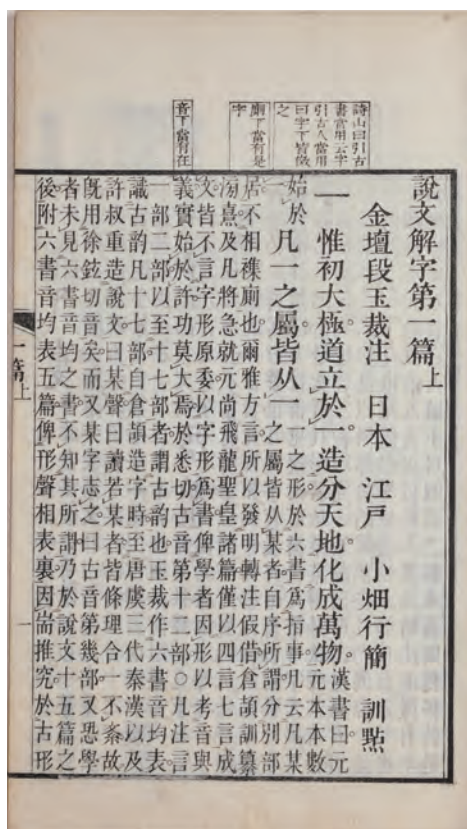 詩山曰引古
書當用云字
引古人當用
曰字下皆倣
之
廁下當有是
字
音下當有在
說文解字第一篇上
金壇段玉裁注 日本 江戶 小畑行簡 訓點
一 惟初大極道立於一造分天地化成萬物
漢書曰元
元本本數
始於
一
凡一之屬皆从一
一之形於六書爲指事凡云凡某
之屬皆从某者自序所謂分別部
居不相襍廁也爾雅方言所以發明轉注假借倉頡訓纂
滂熹及凡將急就元尚飛龍聖皇諸篇僅以四言七言成
文皆不言字形原委以字形爲書俾學者因形以考音與
義實始於許功莫大焉於悉切古音第十二部○凡注言
一部二部以至十七部者謂古韵也玉裁作六書音均表
識古韵凡十七部自倉頡造字時至唐虞三代秦漢以及
許叔重造說文曰某聲曰讀若某者皆條理合一不紊故
旣用徐鉉切音矣而又某字志之曰古音第幾部又恐學
者未見六書音均之書不知其所謂乃於說文十五篇之
後附六書音均表五篇俾形聲相表裏因耑推究於古形
一篇上
一